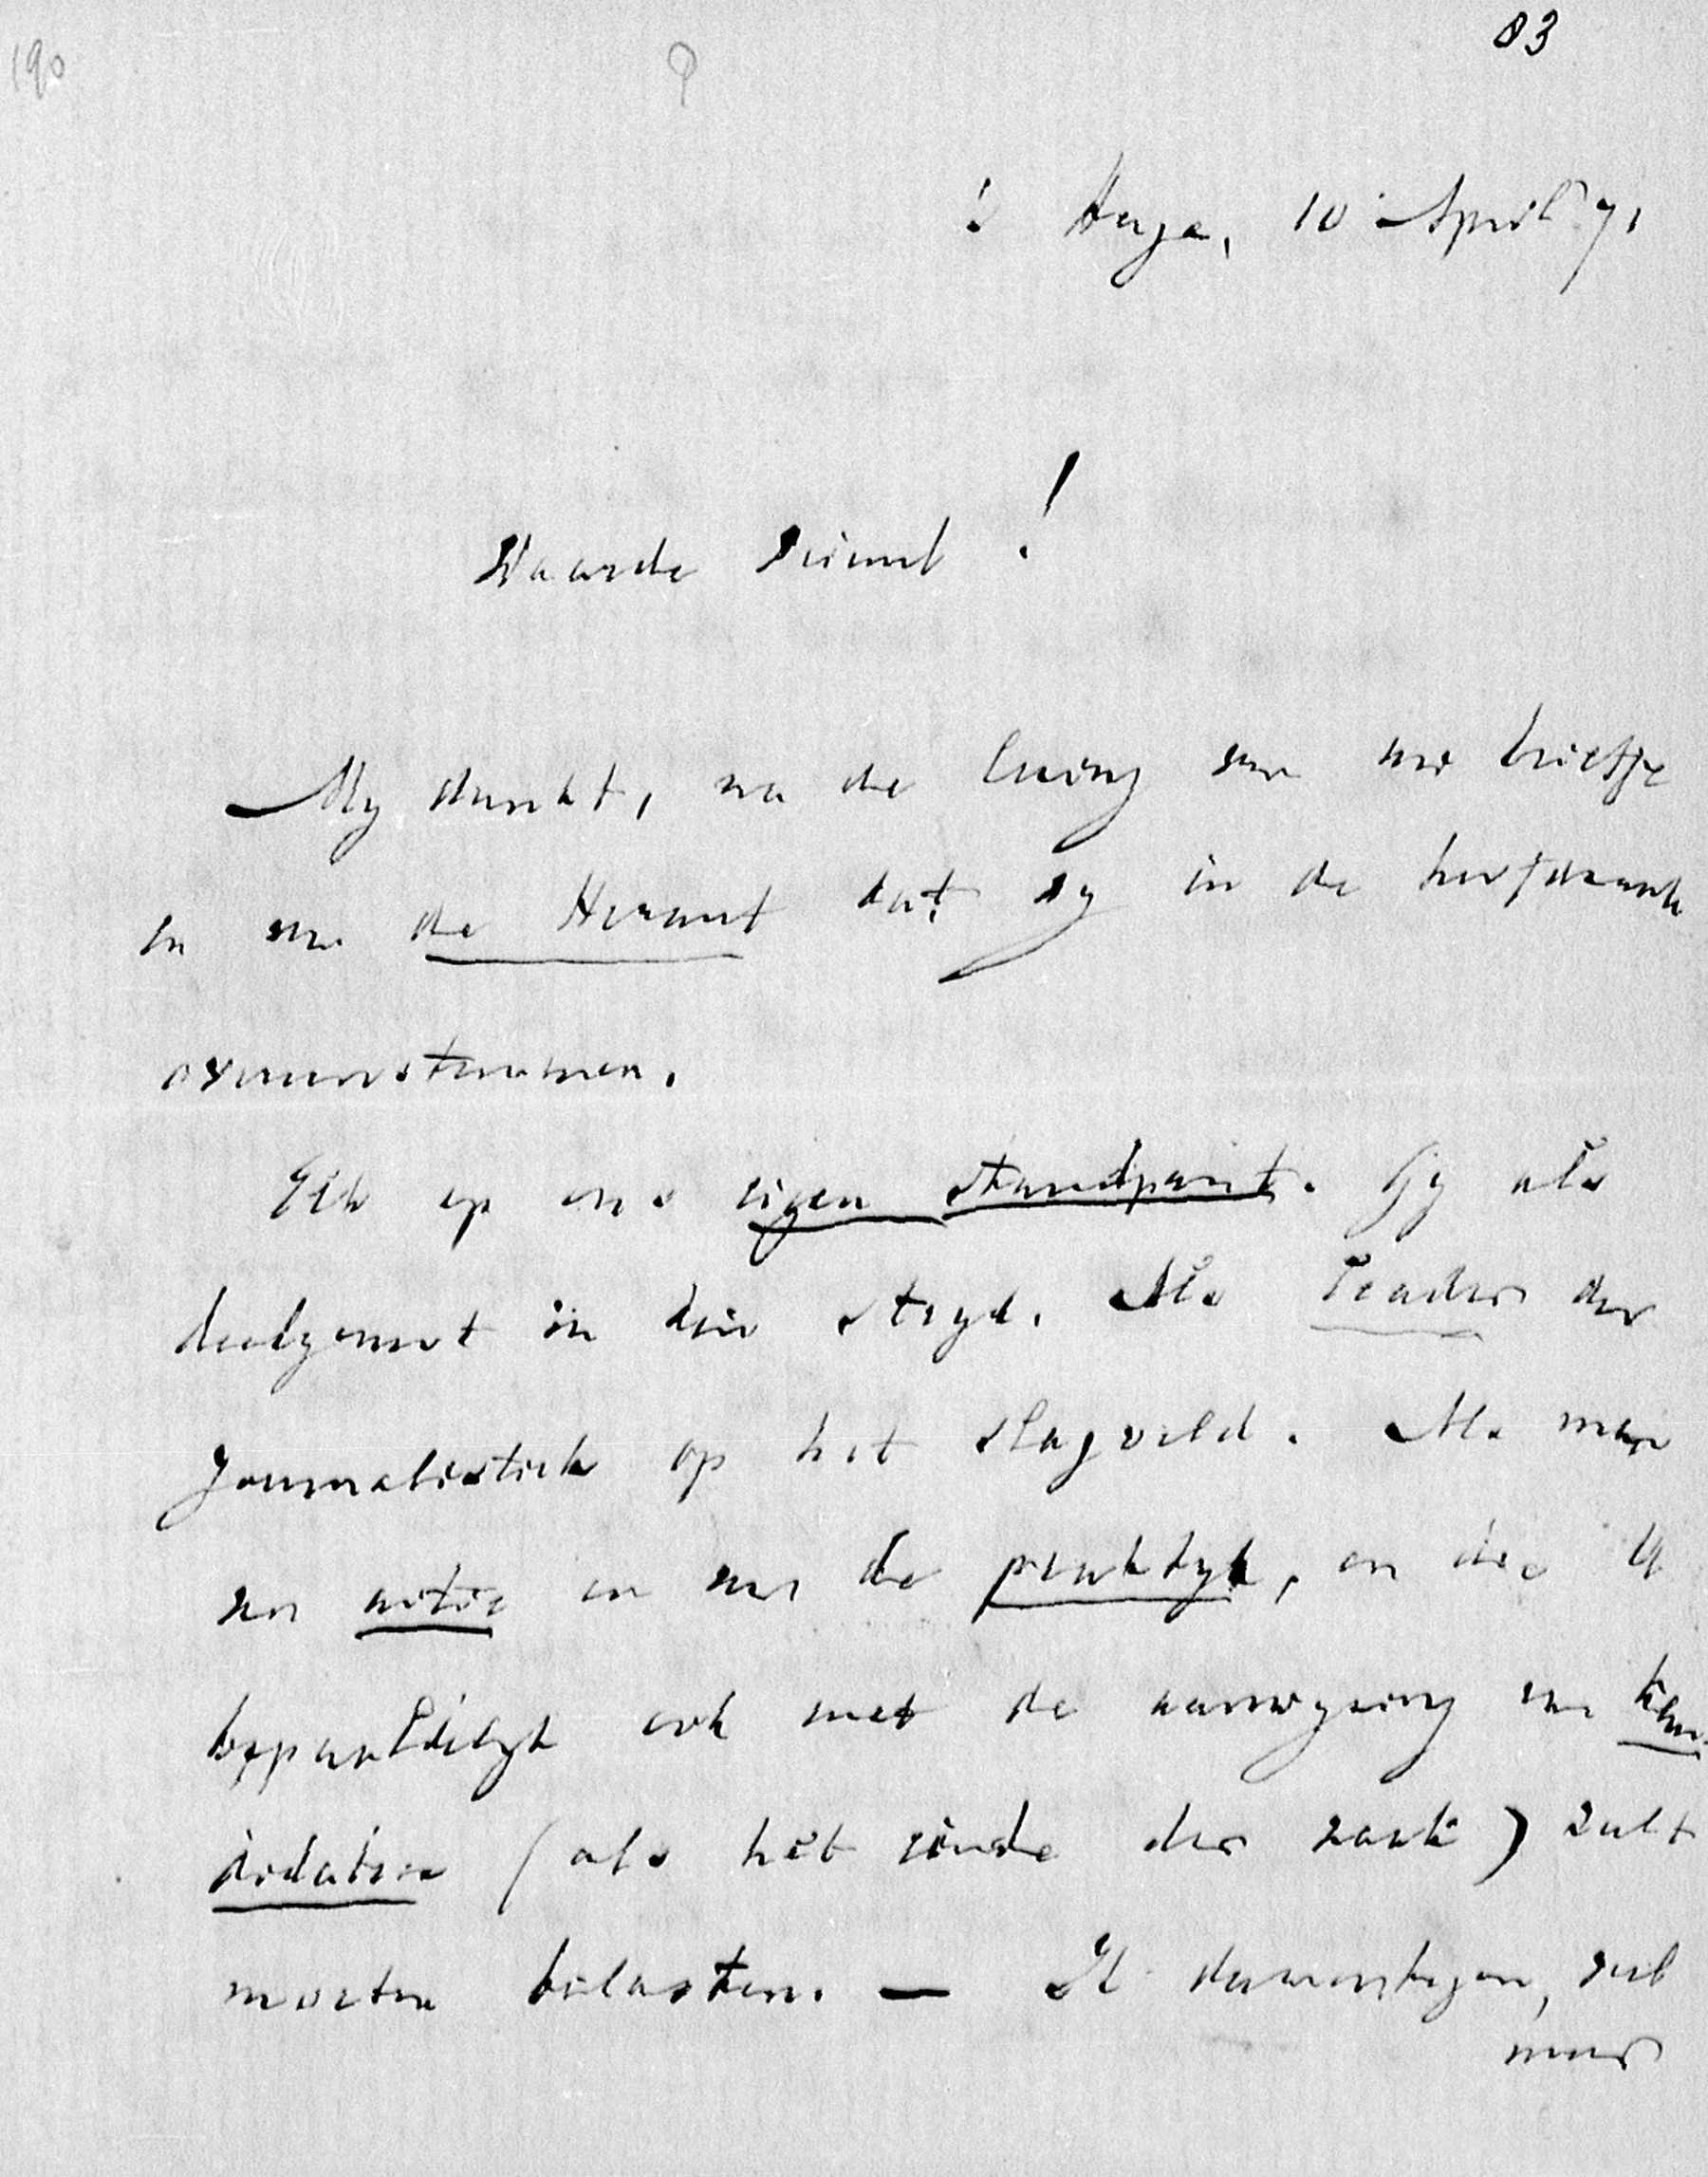 190
83
's Hage, 10 April 71
Waarde Vriend!
My dunkt, na de lezing van uw briefje
en van de Heraut dat wy in de hoofdzaak
overeenstemmen.
Elk op ons eigen standpunt. Gy als
deelgenoot in den stryd. Als leader der
Journalistiek op het slagveld. Als man
van actie en van de praktyk, en die U
bepaaldelyk ook met de aanwyzing van kan-
didaten (als het einde der zaak) zult
moeten belasten. — Ik daarentegen, veel
meer